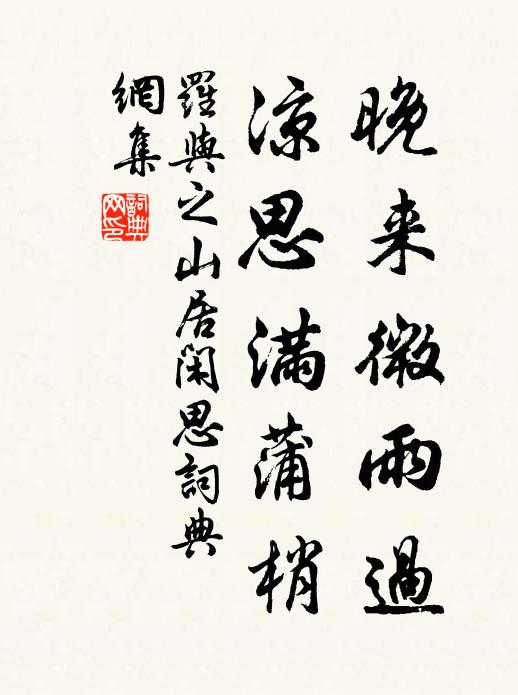 晚来微雨過
凉思满蒲梢
羅與之山居閑思詞典
網集
詞典网印